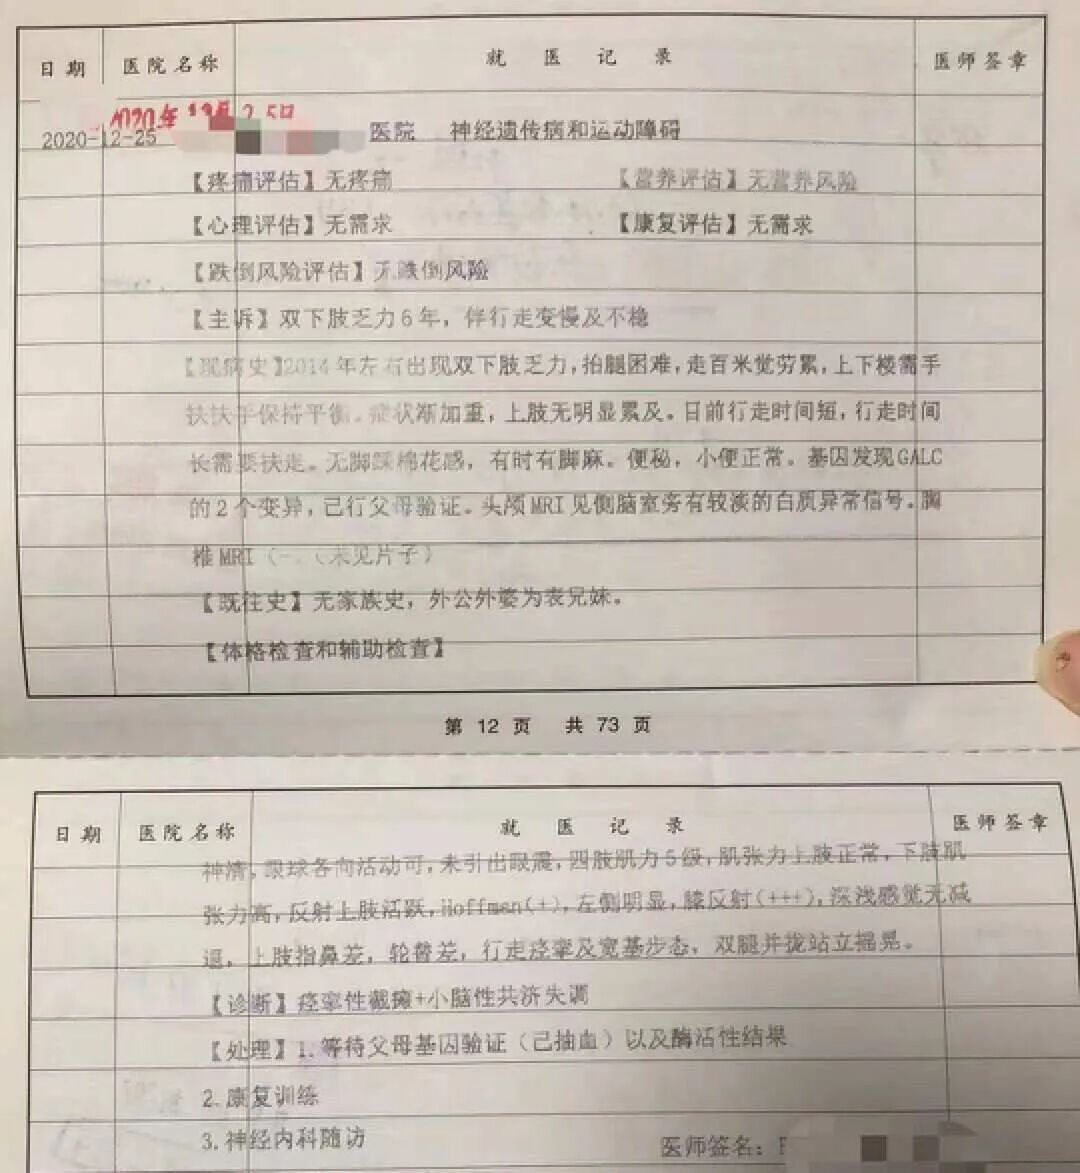 日期 医院名称 就医记录 医师签章
2020年12月25日
2020-12-25 医院 神经遗传病和运动障碍
【疼痛评估】无疼痛 【营养评估】无营养风险
【心理评估】无需求 【康复评估】无需求
【跌倒风险评估】无跌倒风险
【主诉】双下肢乏力6年，伴行走变慢及不稳
【现病史】2014年左右出现双下肢乏力，抬腿困难，走百米觉劳累，上下楼需手
扶扶手保持平衡。症状渐加重，上肢无明显累及。目前行走时间短，行走时间
长需要扶走。无脚踩棉花感，有时有脚麻。便秘，小便正常。基因发现GALC
的2个变异，已行父母验证。头颅MRI见侧脑室旁有较淡的白质异常信号。胸
椎MRI（-.（未见片子）
【既往史】无家族史，外公外婆为表兄妹。
【体格检查和辅助检查】
第 12 页 共 73 页
日期 医院名称 就医记录 医师签章
神清，眼球各向活动可，未引出眼震，四肢肌力5级，肌张力上肢正常，下肢肌
张力高，反射上肢活跃，Hoffman(+)，左侧明显，膝反射(+++)，深浅感觉无减
退，上肢指鼻差，轮替差，行走痉挛及宽基步态，双腿并拢站立摇晃。
【诊断】痉挛性截瘫+小脑性共济失调
【处理】1.等待父母基因验证（已抽血）以及酶活性结果
2.康复训练
3.神经内科随访 医师签名：